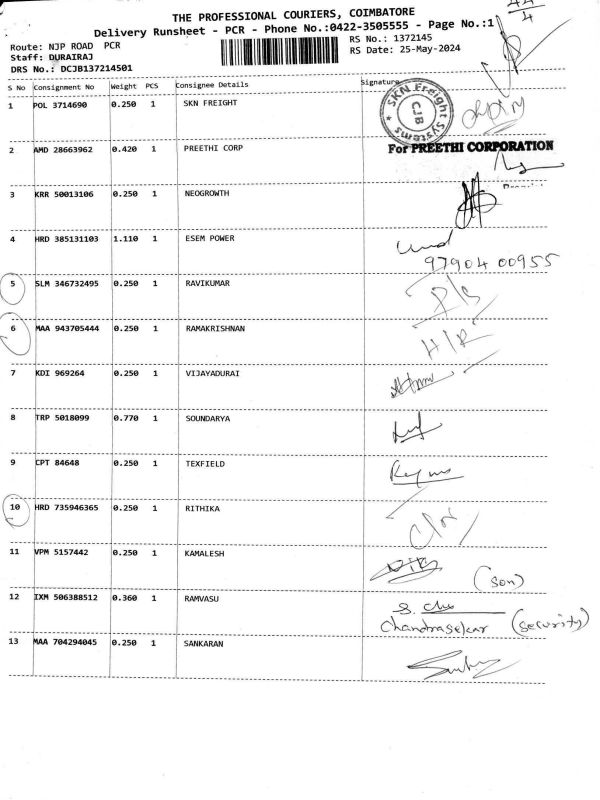 THE PROFESSIONAL COURIERS, COIMBATORE
Delivery Runsheet - PCR - Phone No.:0422-3505555 - Page No.:1
44
4
Route: NJP ROAD PCR
RS No.: 1372145
Staff: DURAIRAJ
RS Date: 25-May-2024
DRS No.: DCJB137214501
S No Consignment No Weight PCS Consignee Details Signature
1 POL 3714690 0.250 1 SKN FREIGHT
SKN Freight Systems
CJB
2 AMD 28663962 0.420 1 PREETHI CORP For PREETHI CORPORATION
3 KRR 50013106 0.250 1 NEOGROWTH
4 HRD 385131103 1.110 1 ESEM POWER
97904 00955
5 SLM 346732495 0.250 1 RAVIKUMAR
6 MAA 943705444 0.250 1 RAMAKRISHNAN
H/R
7 KDI 969264 0.250 1 VIJAYADURAI
8 TRP 5018099 0.770 1 SOUNDARYA
9 CPT 84648 0.250 1 TEXFIELD
10 HRD 735946365 0.250 1 RITHIKA
11 VPM 5157442 0.250 1 KAMALESH
(son)
12 IXM 506388512 0.360 1 RAMVASU
Chandrasekar (security)
13 MAA 704294045 0.250 1 SANKARAN